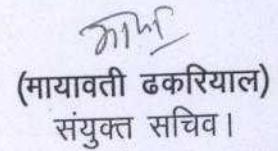 (मायावती ढकरियाल)
संयुक्त सचिव।